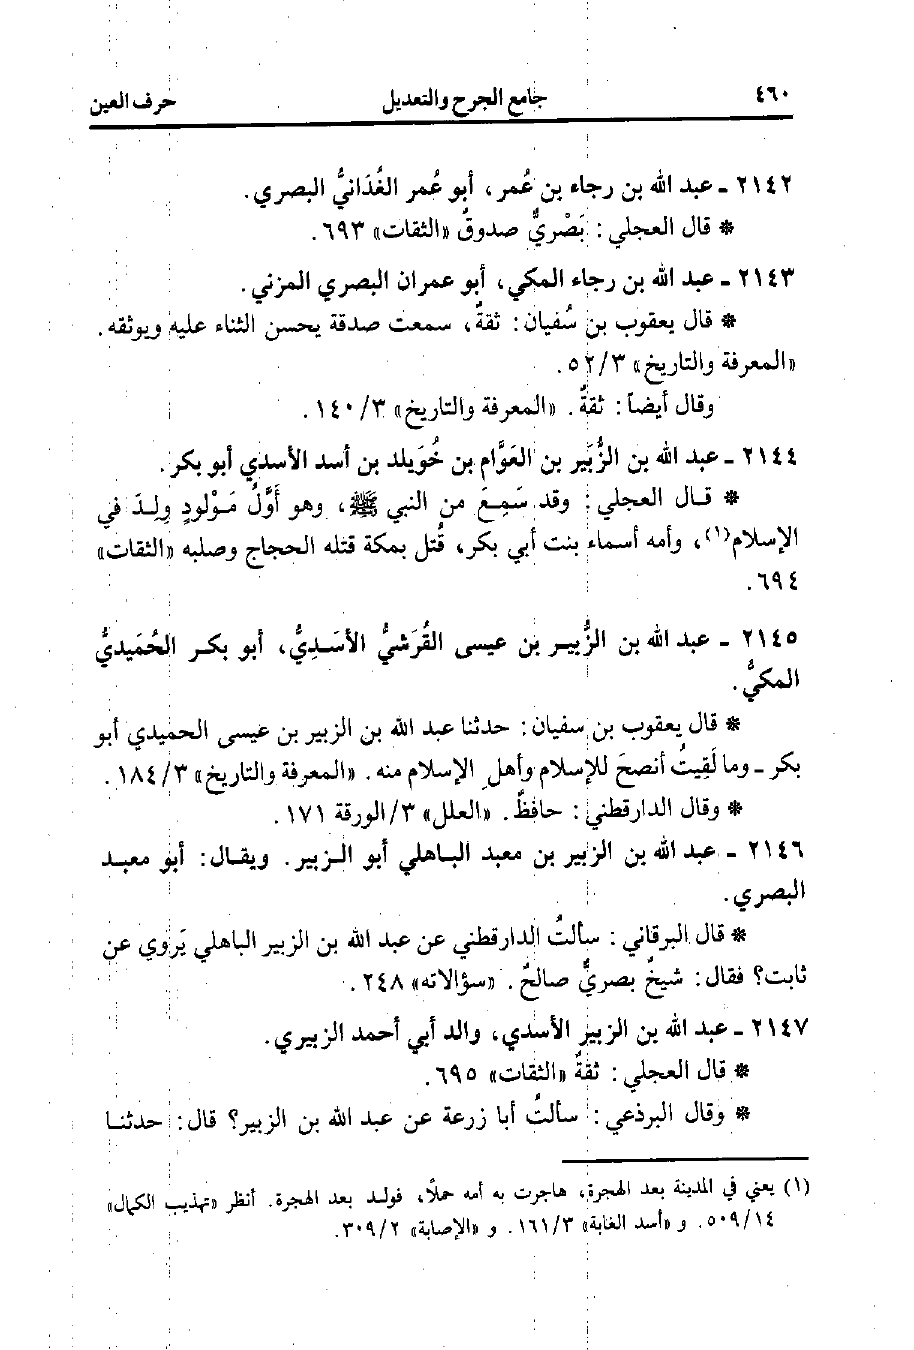 ٤٦٠ جامع الجرح والتعديل حرف العين
٢١٤٢ ـ عبد الله بن رجاء بن عُمر، أبو عُمر الغُدَانيُّ البصري.
* قال العجلي: بَصْريٌّ صدوقٌ «الثقات» ٦٩٣.
٢١٤٣ ـ عبد الله بن رجاء المكي، أبو عمران البصري المزني.
* قال يعقوب بن سُفيان: ثقةٌ، سمعت صدقة يحسن الثناء عليه ويوثقه.
«المعرفة والتاريخ» ٥٢/٣.
وقال أيضاً: ثقةٌ. «المعرفة والتاريخ» ١٤٠/٣.
٢١٤٤ ـ عبد الله بن الزُّبَير بن العَوَّام بن خُوَيلد بن أسد الأسدي أبو بكر.
* قال العجلي: وقد سَمِعَ من النبي ﷺ، وهو أَوَّلُ مَوْلودٍ وِلِدَ في
الإسلام(١)، وأمه أسماء بنت أبي بكر، قُتل بمكة قتله الحجاج وصلبه «الثقات»
٦٩٤.
٢١٤٥ ـ عبد الله بن الزُّبير بن عيسى القُرَشيُّ الأسَدِيُّ، أبو بكر الحُمَيديُّ
المكيُّ.
* قال يعقوب بن سفيان: حدثنا عبد الله بن الزبير بن عيسى الحميدي أبو
بكر ـ وما لَقِيتُ أنصحَ للإسلام وأهلِ الإسلام منه. «المعرفة والتاريخ» ١٨٤/٣.
* وقال الدارقطني: حافظٌ. «العلل» ٣/الورقة ١٧١.
٢١٤٦ ـ عبد الله بن الزبير بن معبد الباهلي أبو الزبير. ويقال: أبو معبد
البصري.
* قال البرقاني: سألتُ الدارقطني عن عبد الله بن الزبير الباهلي يَروي عن
ثابت؟ فقال: شيخٌ بصريٌّ صالحٌ. «سؤالاته» ٢٤٨.
٢١٤٧ ـ عبد الله بن الزبير الأسدي، والد أبي أحمد الزبيري.
* قال العجلي: ثقةٌ «الثقات» ٦٩٥.
* وقال البرذعي: سألتُ أبا زرعة عن عبد الله بن الزبير؟ قال: حدثنا
(١) يعني في المدينة بعد الهجرة، هاجرت به أمه حملًا، فولد بعد الهجرة. أنظر «تهذيب الكمال»
٥٠٩/١٤. و «أسد الغابة» ١٦١/٣. و «الإصابة» ٣٠٩/٢.